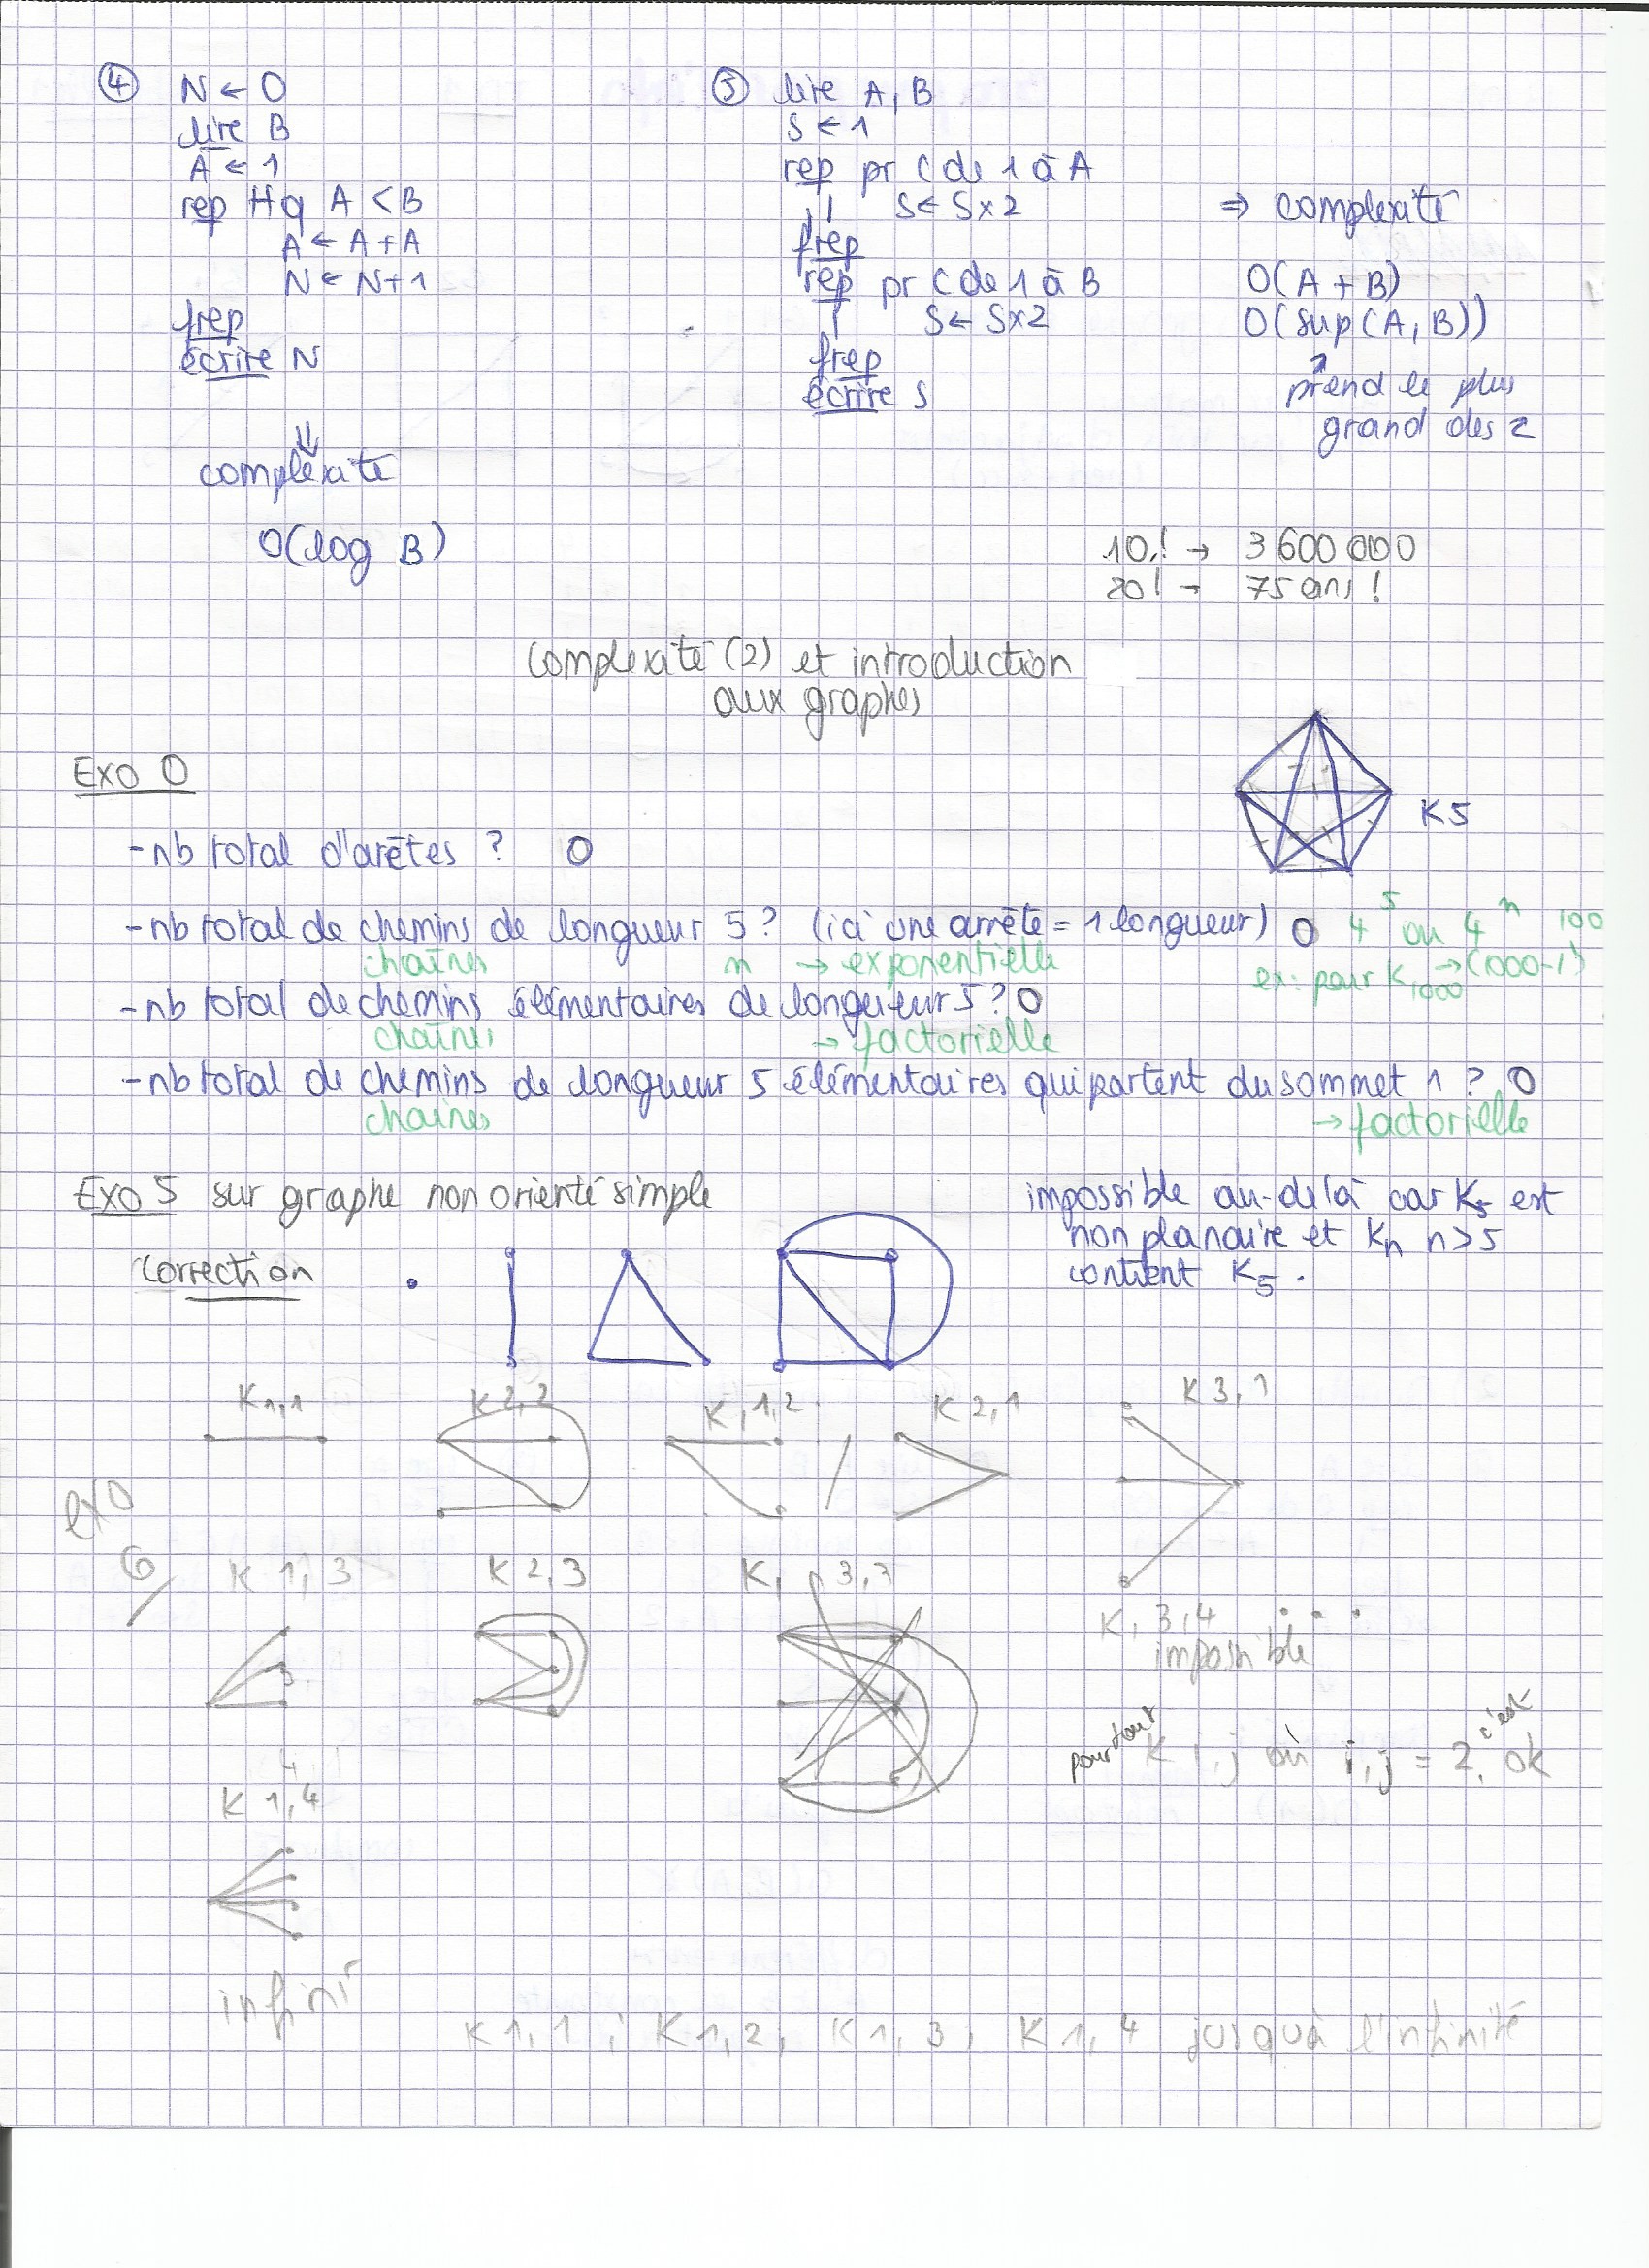 ④ N ← 0
lire B
A ← 1
rep tq A < B
A ← A + A
N ← N + 1
frep
écrire N
⇓
complexité
O(log B)
⑤ lire A, B
S ← 1
rep pr C de 1 à A
S ← S x 2
frep
rep pr C de 1 à B
S ← S x 2
frep
écrire S
⇒ complexité
O(A + B)
O(sup(A, B))
prend le plus
grand des 2
10! → 3 600 000
20! → 75 ans !
Complexité (2) et introduction
aux graphes
K5
Exo 0
- nb total d'arêtes ? O
- nb total de chemins de longueur 5 ? (ici une arrête = 1 longueur) O 4^5 ou 4^n
chaînes n → exponentielle ex : pour K1000 → (1000-1)^100
- nb total de chemins élémentaires de longueur 5 ? O
chaînes → factorielle
- nb total de chemins de longueur 5 élémentaires qui partent du sommet 1 ? O
chaînes → factorielle
Exo 5 sur graphe non orienté simple
Correction
impossible au-delà car K5 est
non planaire et Kn n > 5
contient K5.
K1,1 K2,2 K,1,2 K2,1 K3,1
exo
6/
K1,3 K2,3 K, 3,3
K, 3,4 . . .
impossible
pour tout K i,j où i,j = 2, c'est ok
4
K1,4
infini
K1,1 ; K1,2 ; K1,3 ; K1,4 jusqu'à l'infinité